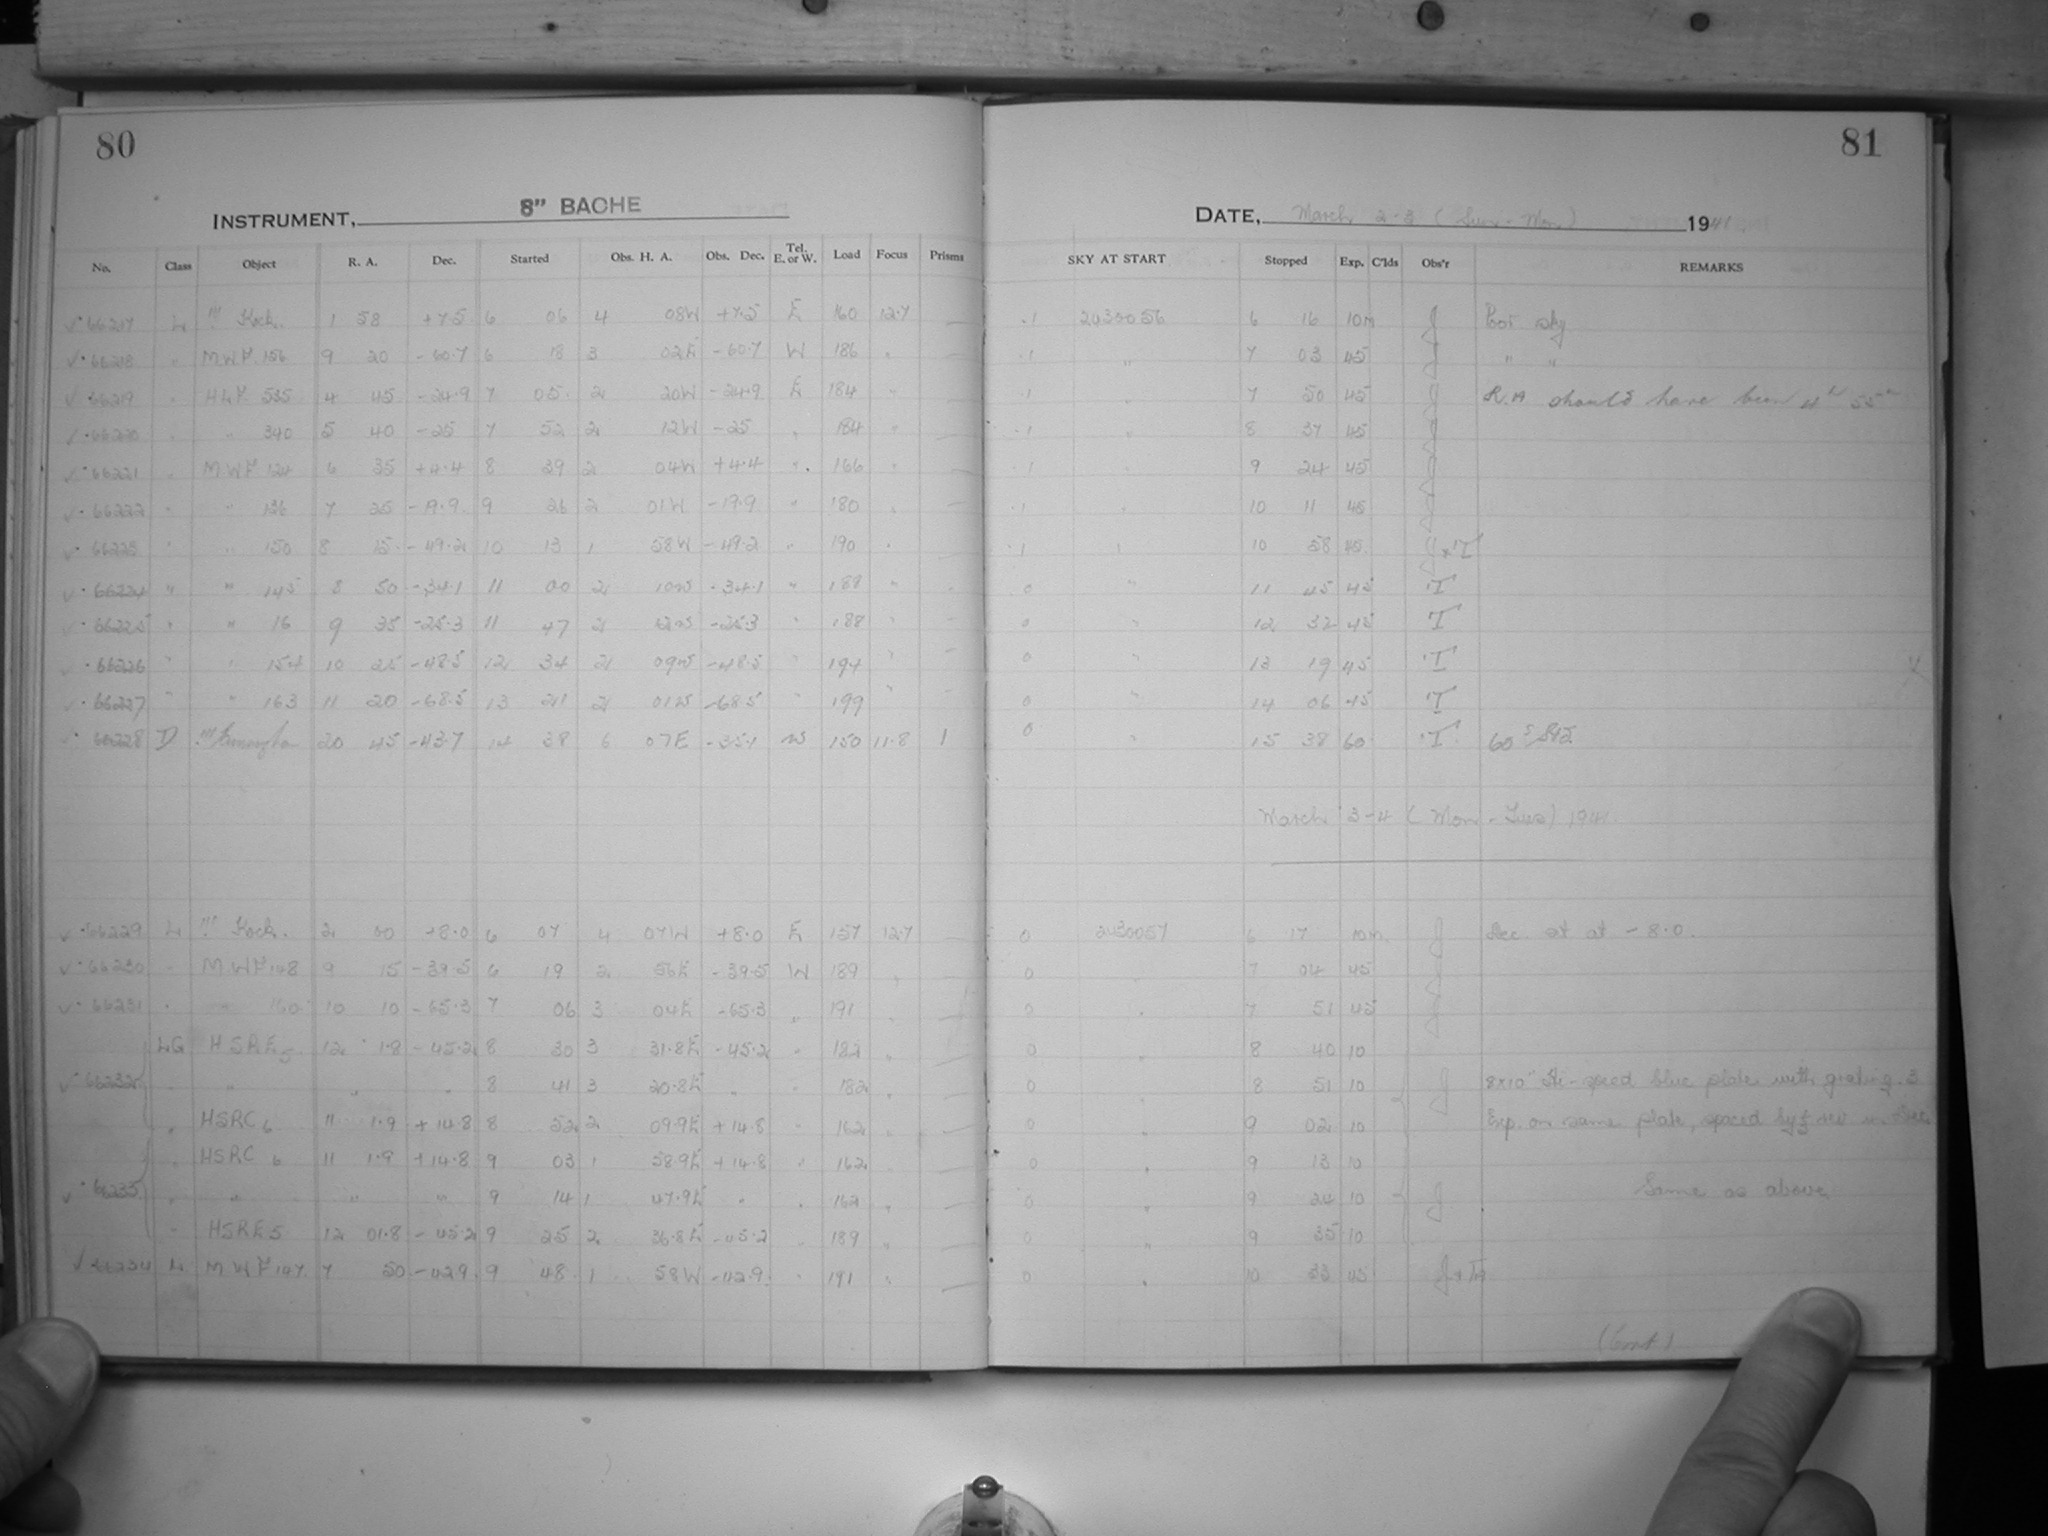 80
INSTRUMENT, 8" BACHE
No. Class Object R. A. Dec. Started Obs. H. A. Obs. Dec. Tel. E. or W. Load Focus Prisms
66217 L !!! Kock. 1 58 +7.5 6 06 4 08W +7.5 E 160 12.7
66218 " MWF 156 9 20 -60.7 6 18 3 02E -60.7 W 186 "
66219 " HLF 535 4 45 -24.9 7 05 2 20W -24.9 E 184 "
66220 " " 340 5 40 -25 7 52 2 12W -25 " 184 "
66221 " MWF 124 6 35 +4.4 8 39 2 04W +4.4 " 166 "
66222 " " 136 7 25 -19.9 9 26 2 01W -19.9 " 180 "
66223 " " 150 8 15 -49.2 10 13 1 58W -49.2 " 190 "
66224 " " 145 8 50 -34.1 11 00 2 10W -34.1 " 188 "
66225 " " 16 9 35 -25.3 11 47 2 -25.3 " 188 "
66226 " " 154 10 25 -48.5 12 34 2 09W -48.5 " 194 "
66227 " " 163 11 20 -68.5 13 21 2 01W -68.5 " 199 "
66228 D !!! 20 45 -43.7 14 38 6 07E -35.1 W 150 11.8 1
66229 L !!! Kock. 2 00 +8.0 6 07 4 07W +8.0 E 157 12.7
66230 " MWF 148 9 15 -39.5 6 19 2 56E -39.5 W 189 "
66231 " " 160 10 10 -65.3 7 06 3 04E -65.3 " 191 "
LG HSRE5 12 1.8 -45.2 8 30 3 31.8E -45.2 " 182 "
66232 " " " " 8 41 3 20.8E " " 182 "
" HSRC6 11 1.9 +14.8 8 52 2 09.9E +14.8 " 162 "
" HSRC 6 11 1.9 +14.8 9 03 1 58.9E +14.8 " 162 "
66233 " " " " 9 14 1 47.9E " " 162 "
" HSRE5 12 01.8 -45.2 9 25 2 36.8E -45.2 " 189 "
66234 L MWF 147 7 50 -42.9 9 48 1 58W -42.9 " 191 "
81
DATE, March 2-3 (Sun.-Mon.) 1941
SKY AT START Stopped Exp. C'lds Obs'r REMARKS
.1 2430056 6 16 10m J Poor sky
.1 " 7 03 45 J " "
.1 " 7 50 45 J R.A should have been 4h 55m
.1 " 8 37 45 J
.1 " 9 24 45 J
.1 " 10 11 45 J
.1 " 10 58 45 J+T
0 " 11 45 45 T
0 " 12 32 45 T
0 " 13 19 45 T
0 " 14 06 45 T
0 " 15 38 60 T 60
March 3-4 (Mon-Tues) 1941
0 2430057 6 17 10m. J Dec. at -8.0.
0 " 7 04 45 J
0 " 7 51 45 J
0 " 8 40 10
0 " 8 51 10 J 8x10" Hi-speed blue plate with grating. 3
0 " 9 02 10 Exp. on same plate, spaced by ½ rev in Dec.
0 " 9 13 10
0 " 9 24 10 J Same as above
0 " 9 35 10
0 " 10 33 45
(Cont.)